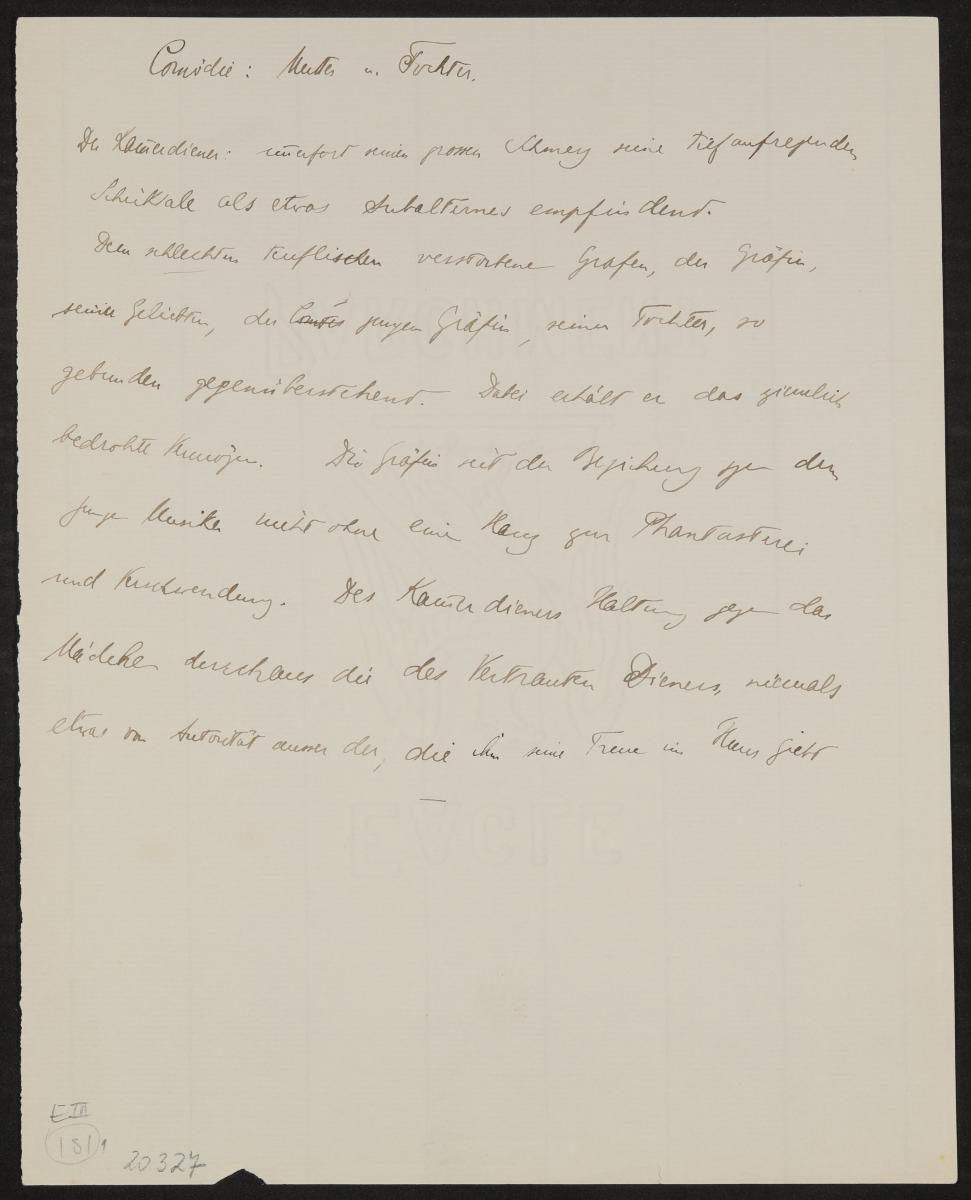 Comödie: Mutter u. Tochter.
Der Kam̄erdiener: im̄erfort seinen grossen Schmerz seine tiefaufregenden
Schicksale als etwas Subalternes empfindend.
Dem schlechten teuflischen verstorbene Grafen, der Gräfin,
seiner Geliebten, der Comtes jungen Gräfin, seiner Tochter, so
gebunden gegenüberstehend. Dabei erhält er das ziemlich
bedrohte Vermögen. Die Gräfin seit der Beziehung zu dem
jungen Musiker nicht ohne einen Hang zur Phantasterei
und Verschwendung. Des Kam̄erdieners Haltung gegen das
Mädchen durchaus die des Vertrauten Dieners, niemals
etwas von Autorität ausser der, die ihm seine Treue im Haus giebt
—
EAGLE
E III
181 1
20327